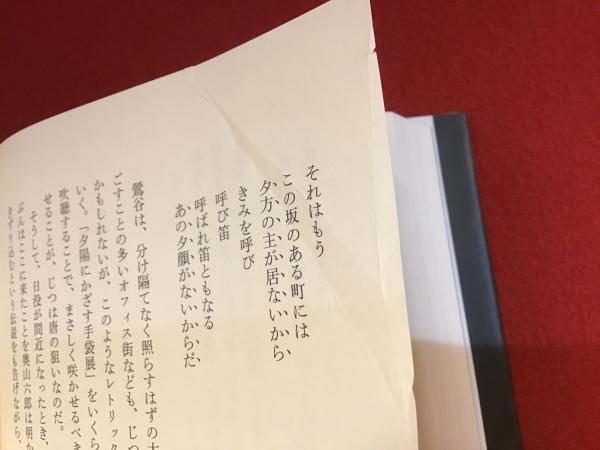 それはもう
この坂のある町には
夕方の主が居ないから、
きみを呼び
呼び笛
呼ばれ笛ともなる
あの夕顔がないから、だ、
鶯谷は、分け隔てなく照らすはずの
ごすことの多いオフィス街なども、じつ
かもしれないが、このようなレトリック
いく。「夕陽にかざす手袋展」をいくら
吹聴することで、まさしく咲かせるべき
せることが、じつは唐の狙いなのだ。
そうして、日没が間近になったとき、
ぶんはここに来たことを奥山六郎は明か
きずり込むという伝説をも告げながら、